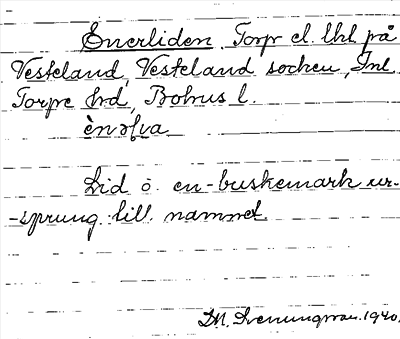 Enerliden. Torp el. lhl på
Vesteland, Vesteland socken, Inl.
Torpe hrd, Bohus l.
Lid o. en-buskemark ur-
-sprung till namnet.
1940.